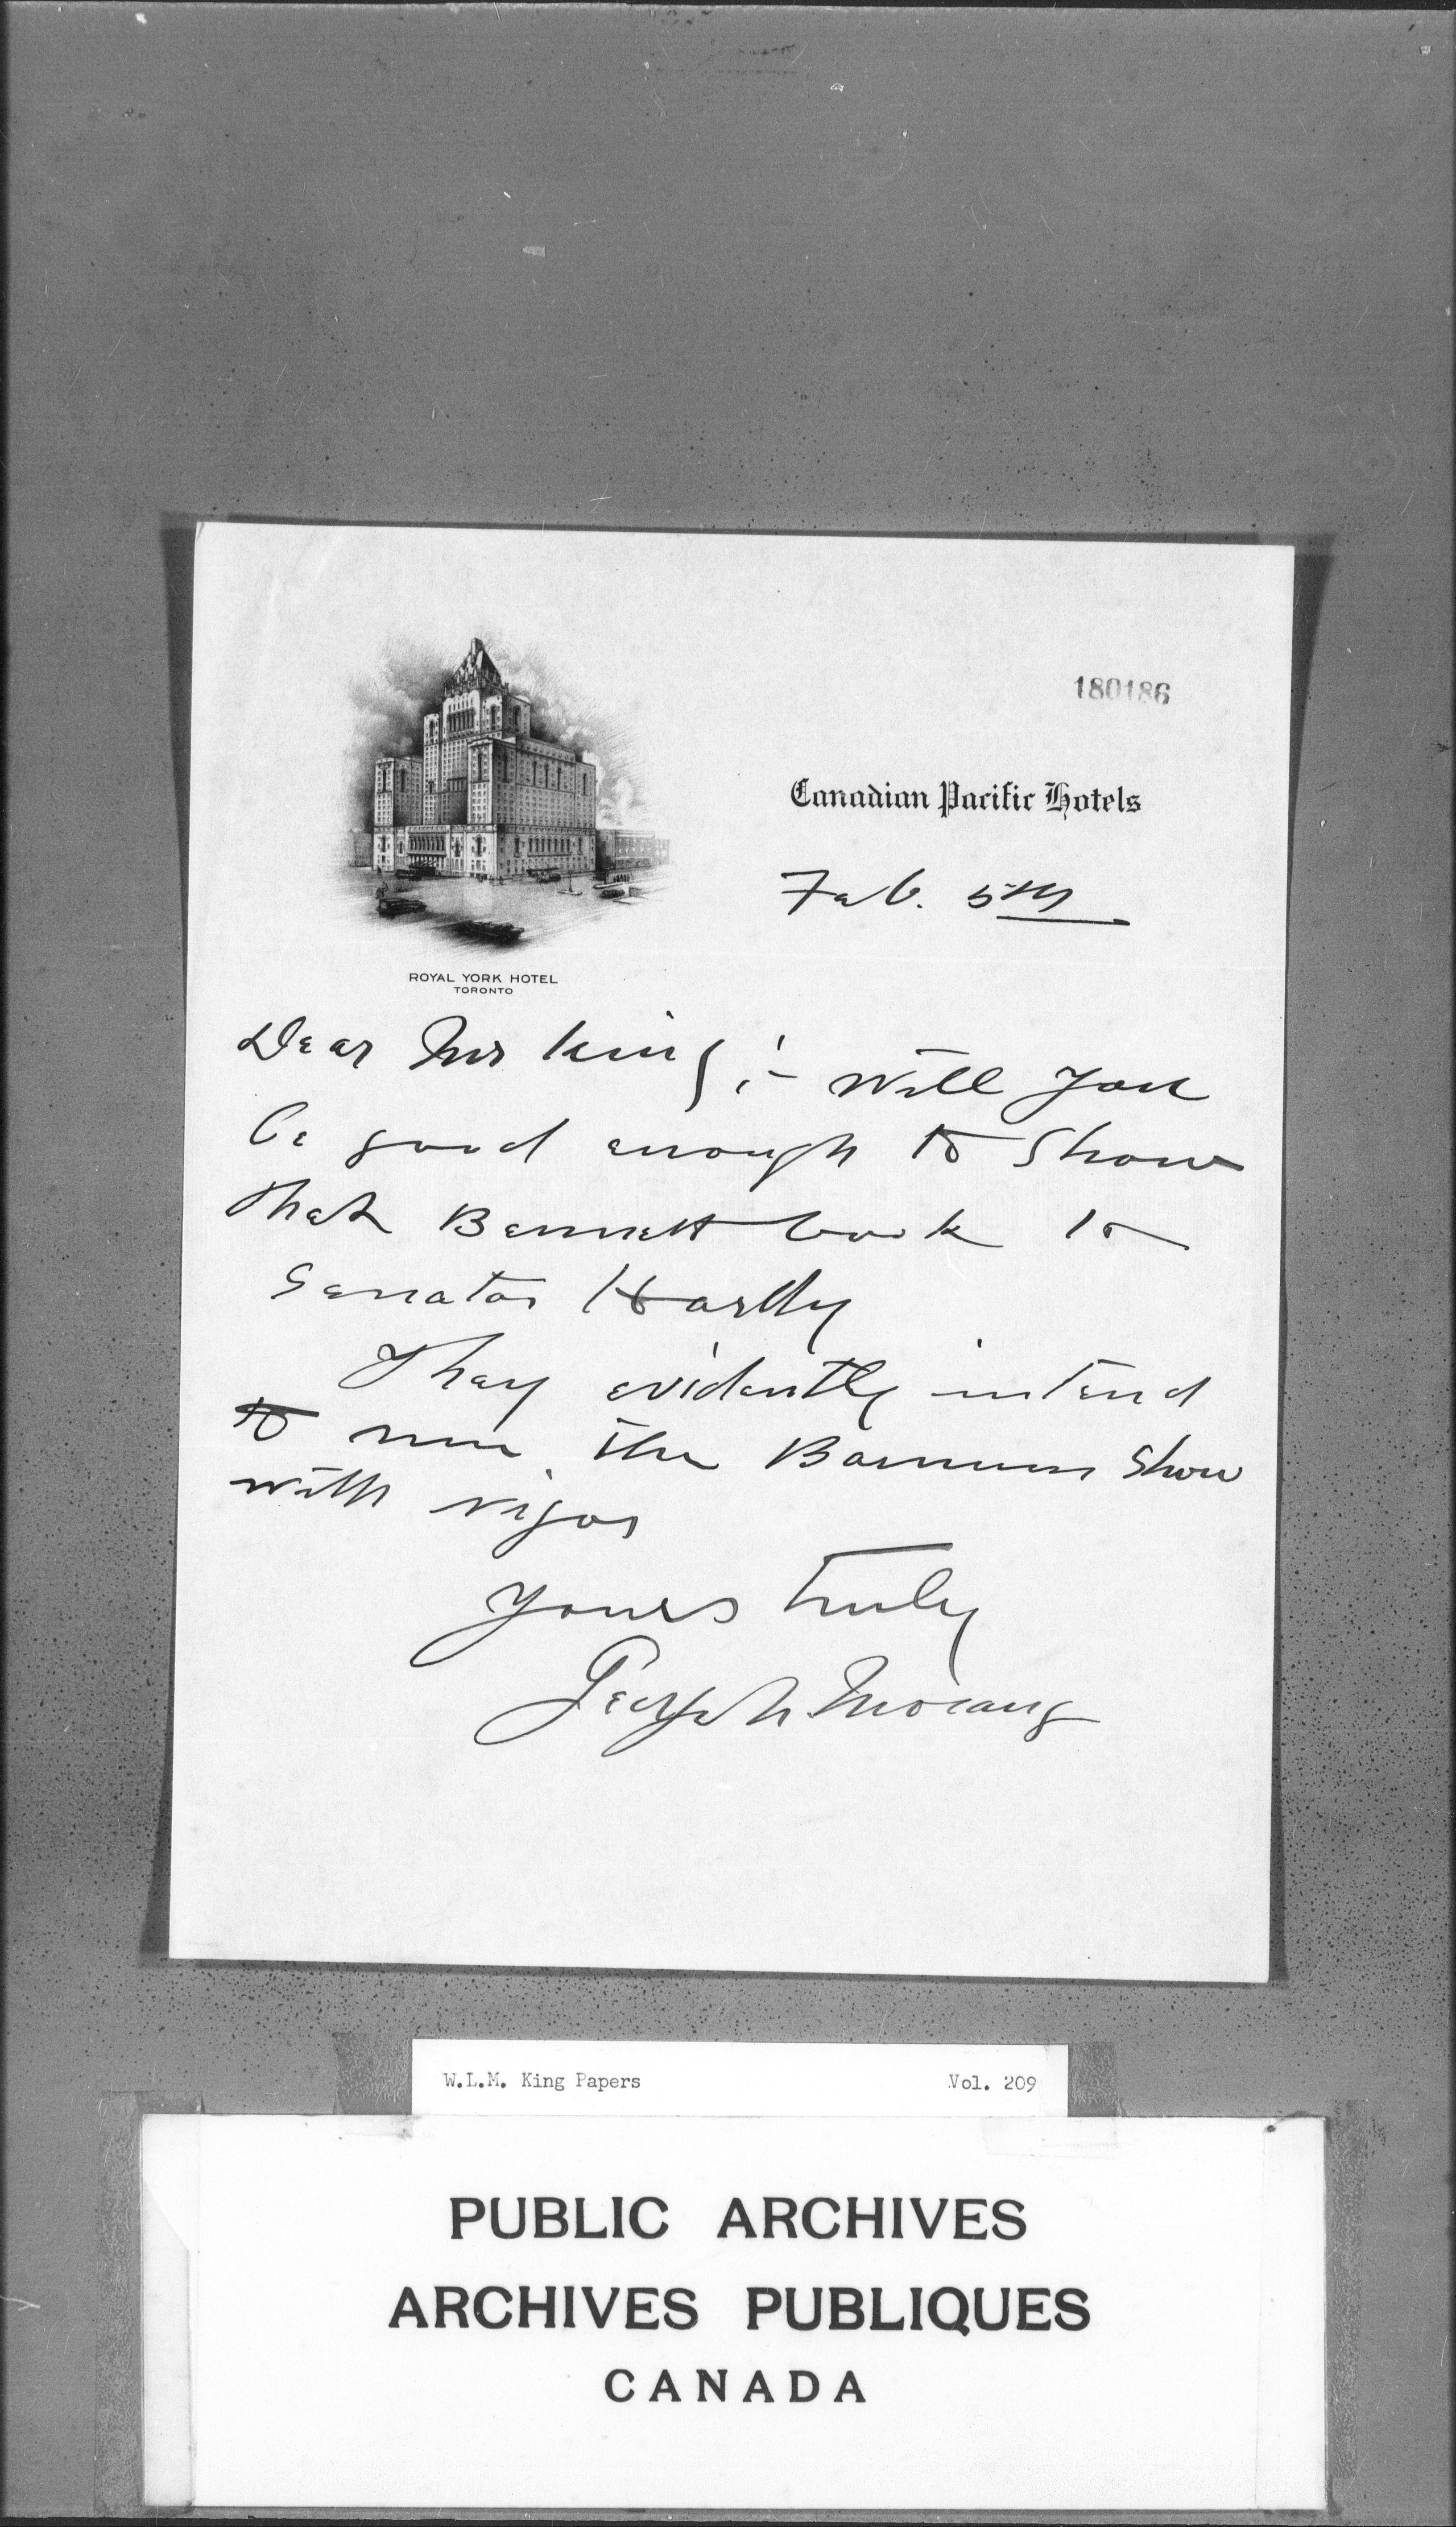 180186
Canadian Pacific Hotels
Feb. 5th
ROYAL YORK HOTEL
TORONTO
Dear Mr King :- Will you
be good enough to show
that Bennett book to
Senator Hardy
They evidently intend
to run the Barnum show
with vigor
Yours truly
George N. Morang
W.L.M. King Papers Vol. 209
PUBLIC ARCHIVES
ARCHIVES PUBLIQUES
CANADA